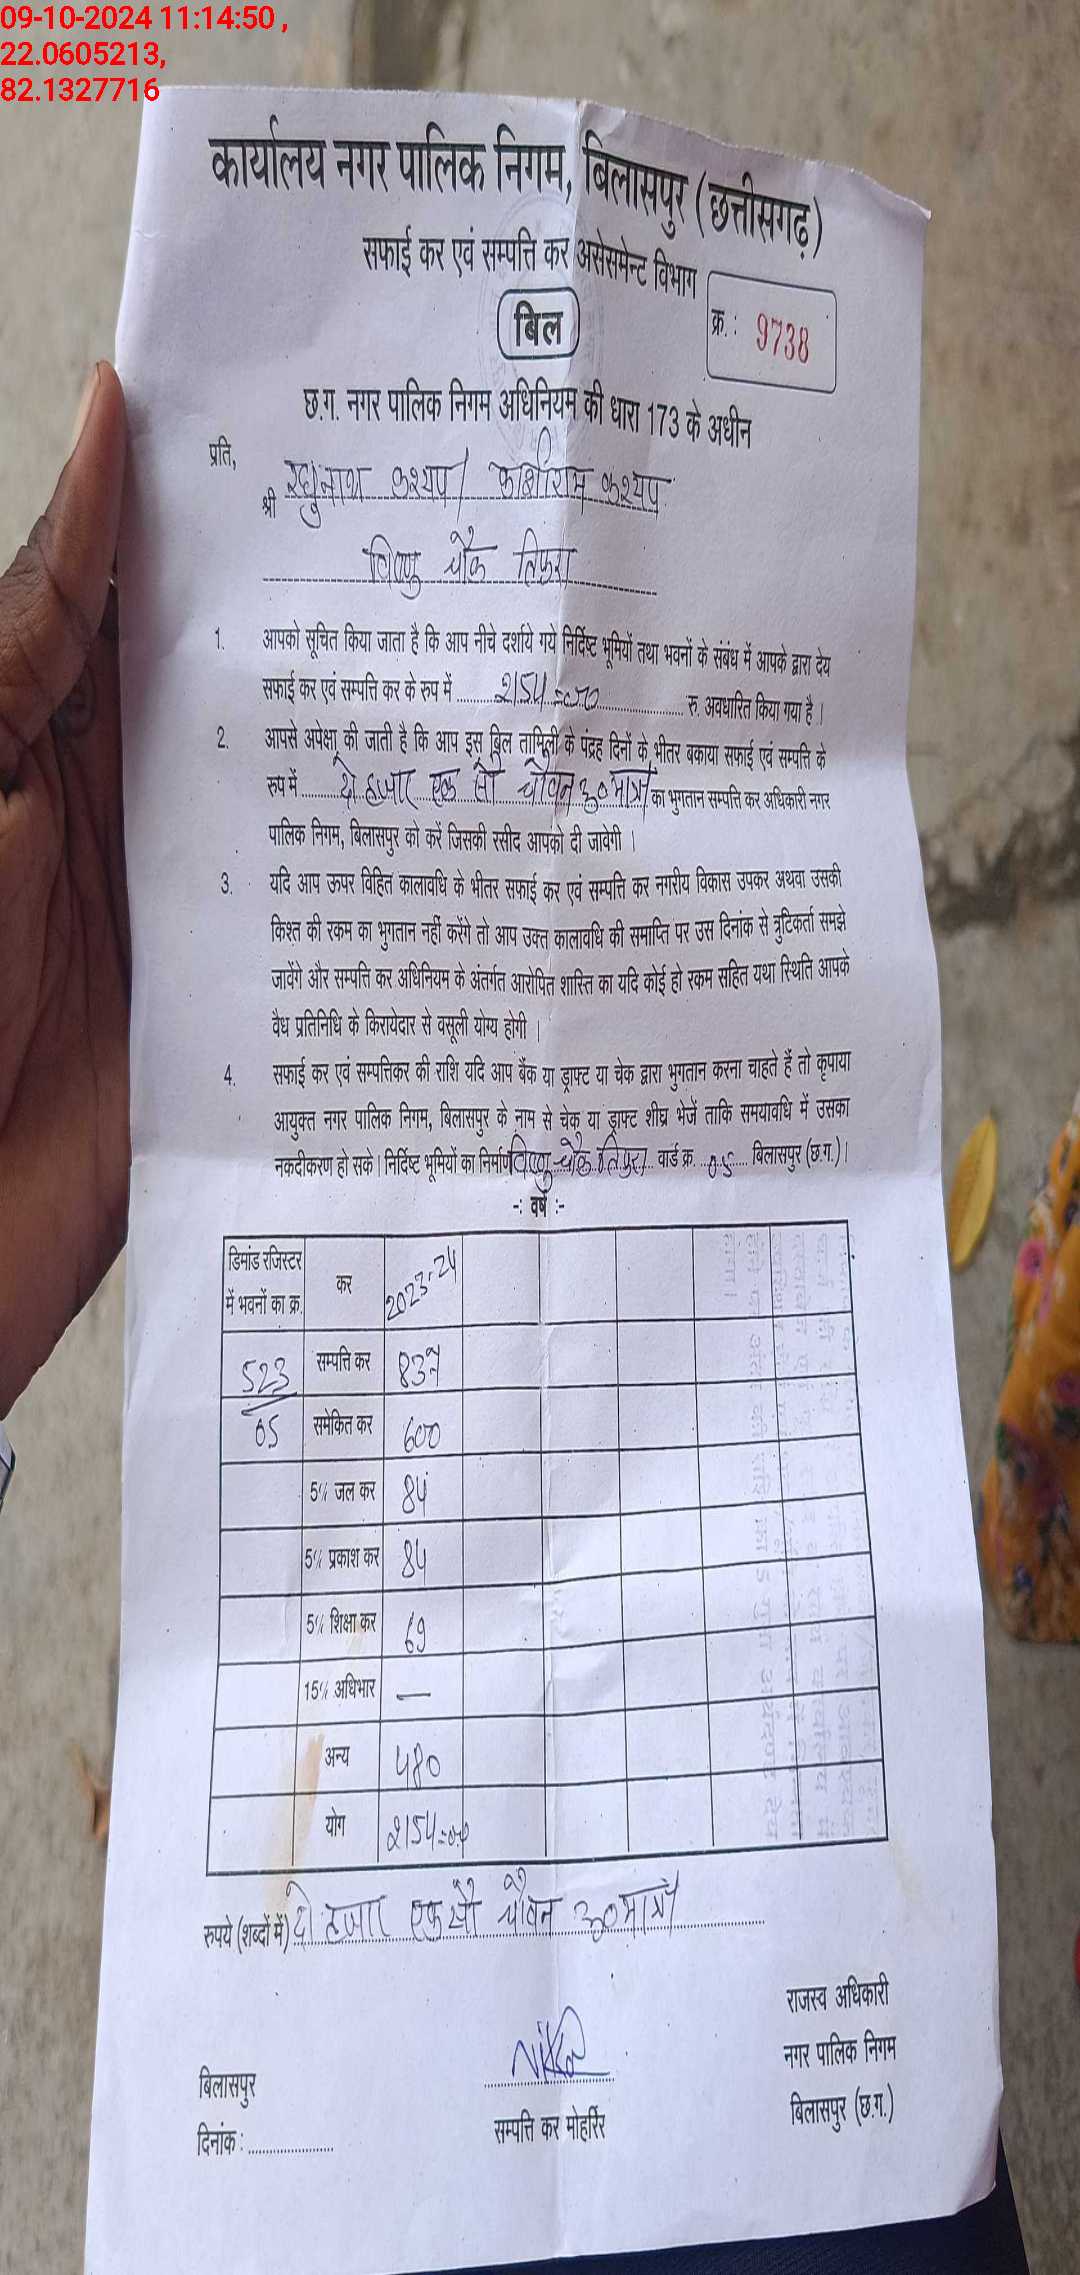 09-10-2024 11:14:50 ,
22.0605213,
82.1327716
कार्यालय नगर पालिक निगम, बिलासपुर (छत्तीसगढ़)
सफाई कर एवं सम्पत्ति कर असेसमेन्ट विभाग
बिल
क्र. : 9738
छ.ग. नगर पालिक निगम अधिनियम की धारा 173 के अधीन
प्रति,
श्री रघुनाथ कश्यप / काशीराम कश्यप
विष्णु चौक तिफरा
1. आपको सूचित किया जाता है कि आप नीचे दर्शाये गये निर्दिष्ट भूमियों तथा भवनों के संबंध में आपके द्वारा देय
सफाई कर एवं सम्पत्ति कर के रुप में 2154=00 रु. अवधारित किया गया है ।
2. आपसे अपेक्षा की जाती है कि आप इस बिल तामिली के पंद्रह दिनों के भीतर बकाया सफाई एवं सम्पत्ति के
रुप में दो हजार एक सौ चौवन रु० मात्र का भुगतान सम्पत्ति कर अधिकारी नगर
पालिक निगम, बिलासपुर को करें जिसकी रसीद आपको दी जावेगी ।
3. यदि आप ऊपर विहित कालावधि के भीतर सफाई कर एवं सम्पत्ति कर नगरीय विकास उपकर अथवा उसकी
किश्त की रकम का भुगतान नहीं करेंगे तो आप उक्त कालावधि की समाप्ति पर उस दिनांक से त्रुटिकर्ता समझे
जावेंगे और सम्पत्ति कर अधिनियम के अंतर्गत आरोपित शास्ति का यदि कोई हो रकम सहित यथा स्थिति आपके
वैध प्रतिनिधि के किरायेदार से वसूली योग्य होगी ।
4. सफाई कर एवं सम्पत्तिकर की राशि यदि आप बैंक या ड्राफ्ट या चेक द्वारा भुगतान करना चाहते हैं तो कृपाया
आयुक्त नगर पालिक निगम, बिलासपुर के नाम से चेक या ड्राफ्ट शीघ्र भेजें ताकि समयावधि में उसका
नकदीकरण हो सके । निर्दिष्ट भूमियों का निर्माण विष्णु चौक तिफरा वार्ड क्र. 05 बिलासपुर (छ.ग.) ।
-: वर्ष :-
डिमांड रजिस्टर में भवनों का क्र. कर 2023-24
523 सम्पत्ति कर 837
05 समेकित कर 600
5% जल कर 84
5% प्रकाश कर 84
5% शिक्षा कर 69
15% अधिभार —
अन्य 480
योग 2154=00
रुपये (शब्दों में) दो हजार एक सौ चौवन रु० मात्र
राजस्व अधिकारी
नगर पालिक निगम
बिलासपुर (छ.ग.)
सम्पत्ति कर मोहर्रिर
बिलासपुर
दिनांक :